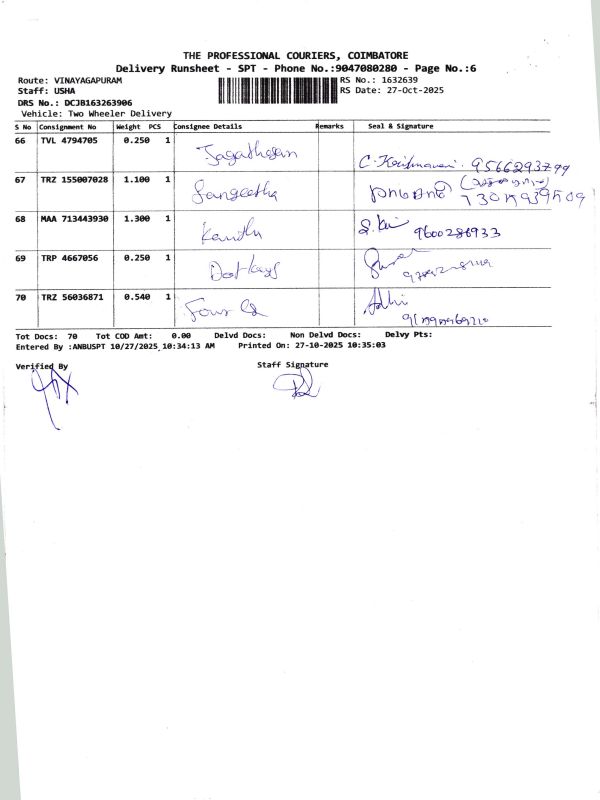 THE PROFESSIONAL COURIERS, COIMBATORE
Delivery Runsheet - SPT - Phone No.:9047080280 - Page No.:6
Route: VINAYAGAPURAM RS No.: 1632639
Staff: USHA RS Date: 27-Oct-2025
DRS No.: DCJB163263906
Vehicle: Two Wheeler Delivery
S No Consignment No Weight PCS Consignee Details Remarks Seal & Signature
66 TVL 4794705 0.250 1 Jagathsan C. Krishnaveni. 9566293799
67 TRZ 155007028 1.100 1 Sangeetha
68 MAA 713443930 1.300 1 9600286933
69 TRP 4667056 0.250 1
70 TRZ 56036871 0.540 1 Four
Tot Docs: 70 Tot COD Amt: 0.00 Delvd Docs: Non Delvd Docs: Delvy Pts:
Entered By :ANBUSPT 10/27/2025 10:34:13 AM Printed On: 27-10-2025 10:35:03
Verified By Staff Signature